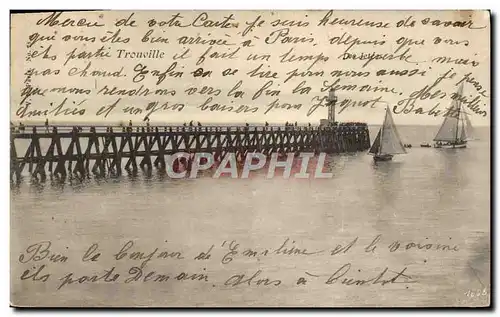 Merci de votre Carte je suis heureuse de savoir
que vous êtes bien arrivée à Paris, depuis que vous
êtes partie Trouville il fait un temps mais
pas chaud. Enfin on se tire pour nous aussi je pense
que nous rendrons vers la fin la Semaine. Mes meilleurs
Amitiés et un gros baisers pour Jaquot Babitt
CPHARAMA
Bien le bonjour de d'Emeline et le voisine
ils parte Demain. alors à bientôt.